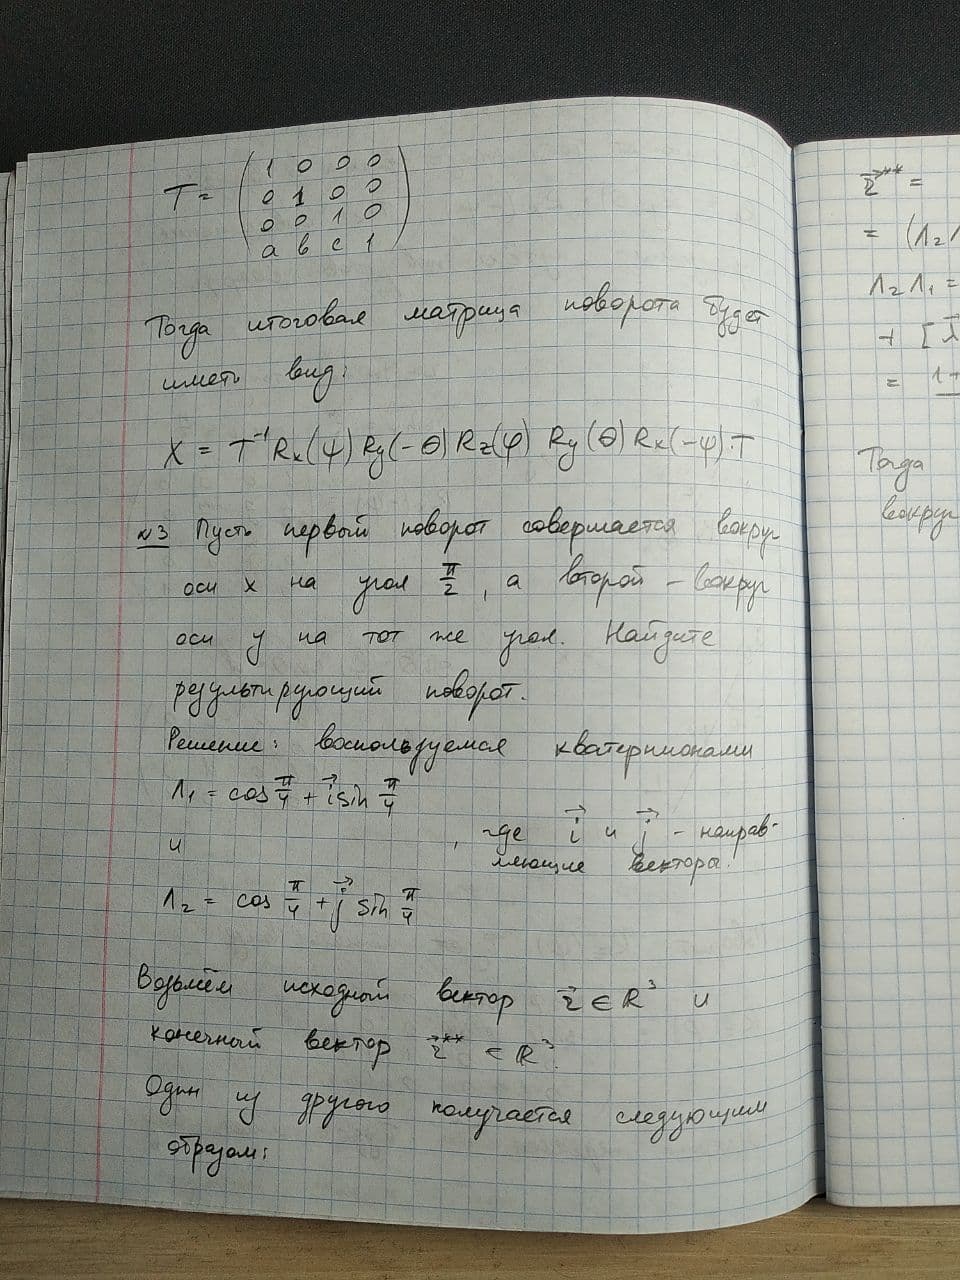 T = ( 1 0 0 0
0 1 0 0
0 0 1 0
a b c 1 )
Тогда итоговая матрица поворота будет
иметь вид:
X = T⁻¹ Rx(ψ) Ry(-θ) Rz(φ) Ry(θ) Rx(-ψ)·T
№3 Пусть первый поворот совершается вокруг
оси x на угол π/2, а второй - вокруг
оси y на тот же угол. Найдите
результирующий поворот.
Решение: воспользуемся кватернионами
Λ₁ = cos π/4 + i⃗ sin π/4
и , где i⃗ и j⃗ - направ-
ляющие вектора.
Λ₂ = cos π/4 + j⃗ sin π/4
Возьмём исходный вектор r⃗ ∈ R³ и
конечный вектор r⃗** ∈ R³.
Один из другого получается следующим
образом:
r⃗** =
= (Λ₂Λ
Λ₂Λ₁ =
+ [λ⃗
= 1+
Тогда
вокруг